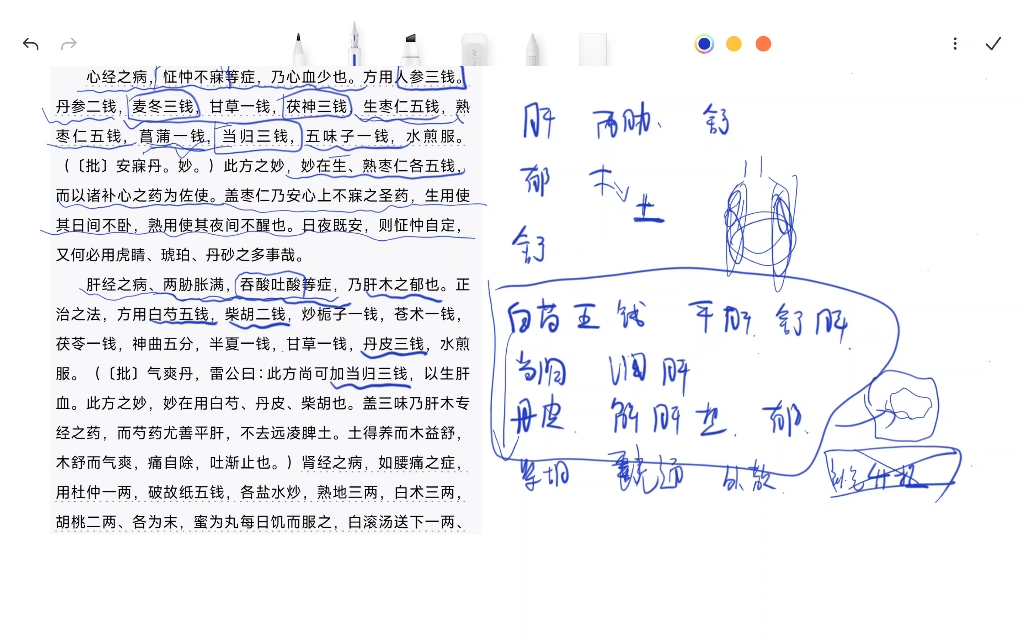 心经之病，怔忡不寐等症，乃心血少也。方用人参三钱。
丹参二钱，麦冬三钱，甘草一钱，茯神三钱，生枣仁五钱，熟
枣仁五钱，菖蒲一钱，当归三钱，五味子一钱，水煎服。
（〔批〕安寐丹。妙。）此方之妙，妙在生、熟枣仁各五钱，
而以诸补心之药为佐使。盖枣仁乃安心上不寐之圣药，生用使
其日间不卧，熟用使其夜间不醒也。日夜既安，则怔忡自定，
又何必用虎睛、琥珀、丹砂之多事哉。
肝经之病、两胁胀满，吞酸吐酸等症，乃肝木之郁也。正
治之法，方用白芍五钱，柴胡二钱，炒栀子一钱，苍术一钱，
茯苓一钱，神曲五分，半夏一钱，甘草一钱，丹皮三钱，水煎
服。（〔批〕气爽丹，雷公曰：此方尚可加当归三钱，以生肝
血。此方之妙，妙在用白芍、丹皮、柴胡也。盖三味乃肝木专
经之药，而芍药尤善平肝，不去远凌脾土。土得养而木益舒，
木舒而气爽，痛自除，吐渐止也。）肾经之病，如腰痛之症，
用杜仲一两，破故纸五钱，各盐水炒，熟地三两，白术三两，
胡桃二两、各为末，蜜为丸每日饥而服之，白滚汤送下一两、
肝 两胁、舒
郁 木 土
舒
白芍五钱 平肝 舒肝
当归 润肝
丹皮 解肝 郁
柴胡 通 外散